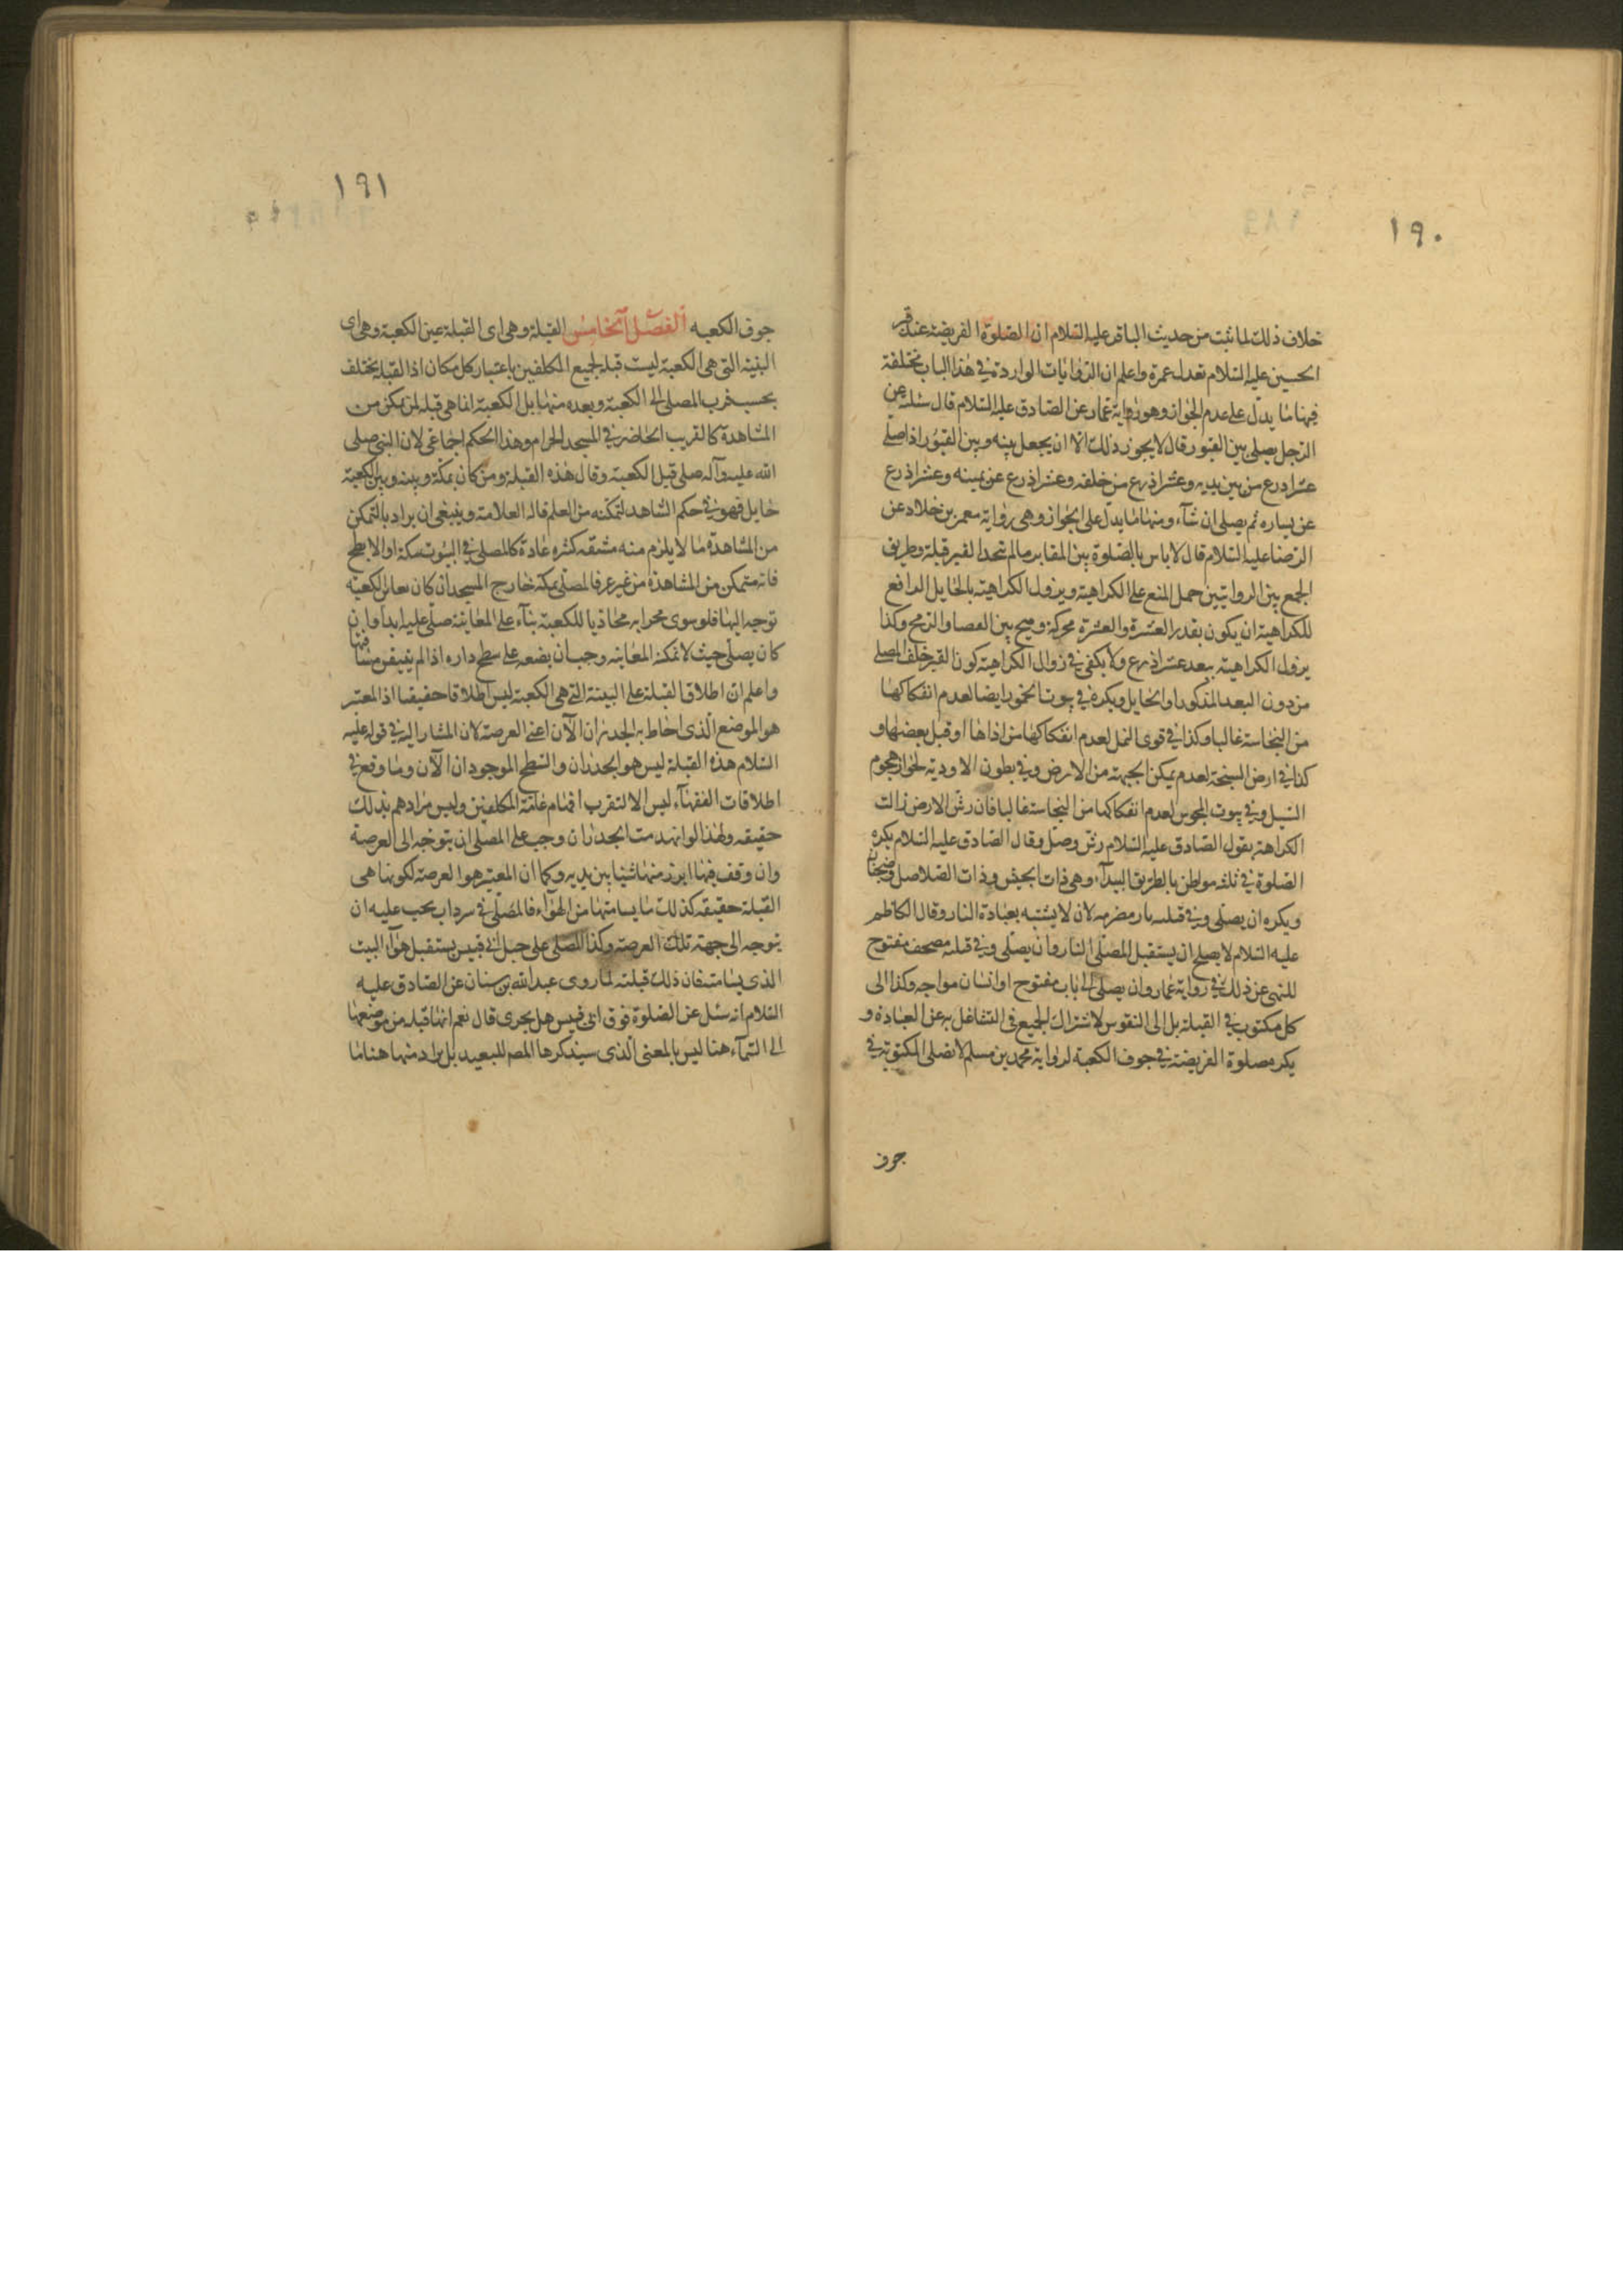 ١٩٠
خلاف ذلك لما ثبت من حديث الباقر عليه السّلام ان الصّلوة الفريضة عند قبر
الحسين عليه السّلام تعدل عمرة واعلم ان الرّوايات الواردة في هذا الباب مختلفة
فمنها ما يدلّ على عدم الجواز وهو رواية عمّار عن الصّادق عليه السّلام قال سئلته عن
الرّجل يصلى بين القبور قال لا يجوز ذلك الّا ان يجعل بينه وبين القبور اذا صلّى
عشر اذرع من بين يديه وعشر اذرع من خلفه وعشر اذرع عن يمينه وعشر اذرع
عن يساره ثم يصلى ان شآء ومنها ما يدلّ على الجواز وهى رواية معمر بن خلاد عن
الرّضا عليه السّلام قال لا باس بالصّلوة بين المقابر ما لم يتخذ القبر قبلة وطريق
الجمع بين الروايتين حمل المنع على الكراهية ويزول الكراهيته بالحايل الدافع
للكراهية ان يكون بقدر العشرة والعشرة محركة وميح بين العصا والرّمح وكذا
يزول الكراهيته ببعد عشر اذرع ولا يكفى في زوال الكراهيته كون القبر خلف المصلى
من دون البعد المذكور او الحايل ويكره في بيوت الخمور ايضا لعدم انفكاكها
من النجاسة غالبا وكذا في قرى النمل لعدم انفكاكها من اذاها او قبل بعضها و
كذا في ارض السبخة لعدم تمكن الجبهة من الارض وفي بطون الاودية لجواز هجوم
السّيل وفي بيوت المجوس لعدم انفكاكها من النجاسة غالبا فان رشّ الارض زالت
الكراهة بقول الصّادق عليه السّلام رشّ وصلّ وقال الصّادق عليه السّلام يكره
الصّلوة في ثلثه مواطن بالطريق البيدآء وهى ذات الجيش وذات الصّلاصل وضجنان
ويكره ان يصلّى وفي قبلته نار مضرمه لان لا يشتبه بعبادة النار وقال الكاظم
عليه السّلام لا يصلح ان يستقبل المصلّى النار وان يصلّى وفي قبلته مصحف مفتوح
للنهى عن ذلك في رواية عمار وان يصلى الى باب مفتوح او انسان مواجه وكذا الى
كل مكتوب في القبلة بل الى النقوس لاشتراك الجميع في التشاغل به عن العبادة و
يكره صلوة الفريضة في جوف الكعبة لرواية محمد بن مسلم لا تصلى المكتوبة في
جوف
١٩١
جوف الكعبه الفصل الخامس القبلة وهى اى القبلة عين الكعبة وهى اى
البنية التى هى الكعبة ليست قبلة لجميع المكلفين باعتبار كل مكان اذا القبلة يختلف
بحسب قرب المصلى الى الكعبة وبعده منها بل الكعبة انما هى قبلة لمن يمكن من
المشاهدة كالقريب الحاضر في المسجد الحرام وهذا الحكم اجماعى لان النبى صلى
الله عليه وآله صلى قبل الكعبة وقال هذه القبلة ومن كان بمكّة وبينه وبين الكعبة
حايل فهو في حكم الشاهد لتمكّنه من العلم قاله العلامة وينبغى ان يراد بالتمكن
من المشاهدة ما لا يلزم منه مشقه كثيره عادة كالمصلى في البيوت بمكة او الابطح
فانه متمكن من المشاهدة من غير عرفا لمصلّى بمكة خارج المسجد ان كان يعاين الكعبه
توجه اليها فلو سوى محرابه محاذيا للكعبة بنآء على المعاينة صلّى عليه ابدا وان
كان يصلّى حيث لا تمكنه المعاينه وجب ان يضعه على سطح داره اذا لم يتيقن مسامتها
واعلم ان اطلاق القبلة على البينة التى هى الكعبة ليس اطلاقا حقيقيا اذ المعتبر
هو الموضع الّذى احاط به الجدران الآن اعنى العرصة لان المشار اليه في قوله عليه
السّلام هذه القبلة ليس هو الجدران والسّطح الموجودان الآن وما وقع في
اطلاقات الفقهآء ليس الا لتقرب افهام عامّة المكلفين وليس مرادهم بذلك
حقيقه ولهذا لو انهدمت الجدران وجب على المصلى ان يتوجّه الى العرصة
وان وقف فيها ابرز منها شيئا بين يديه وكما ان المعتبر هو العرصة لكونها هى
القبلة حقيقه كذلك ما يسامتها من الهوآء فالمصلّى في سرداب يجب عليه ان
يتوجه الى جهة تلك العرصة وكذا المصلى على جبل ابى قبيس يستقبل هوآء البيت
الذى يسامته فان ذلك قبلته لما روى عبد الله بن سنان عن الصّادق عليه
السّلام انه سئل عن الصّلوة فوق ابى قبيس هل يجرى قال نعم انها قبلة من موضعها
الى السّمآء هنا ليس بالمعنى الّذى سيذكرها المصر للبعيد بل يراد منها هنا ما